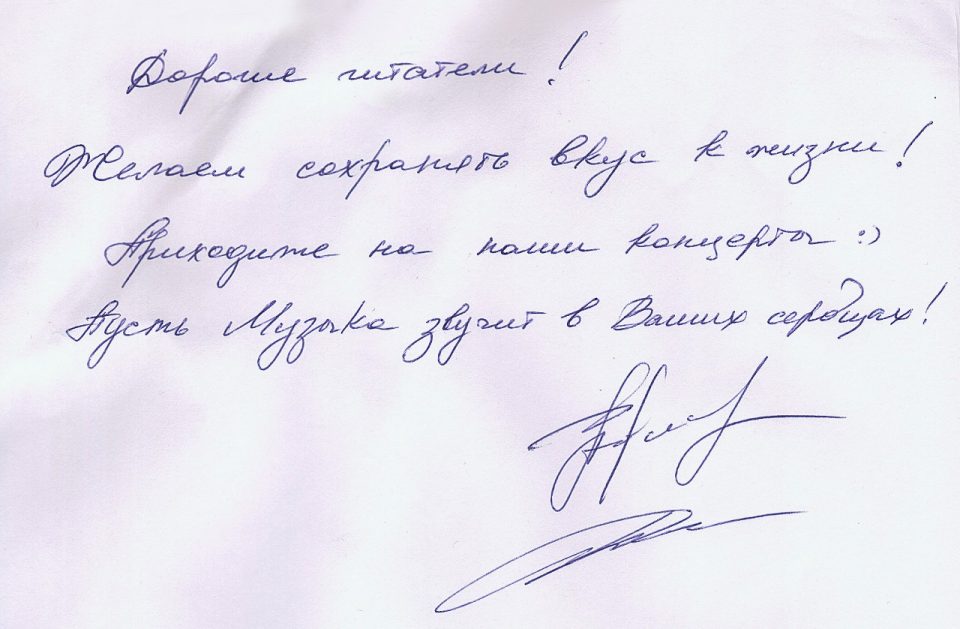 Дорогие читатели!
Желаем сохранять вкус к жизни!
Приходите на наши концерты :)
Пусть Музыка звучит в Ваших сердцах!